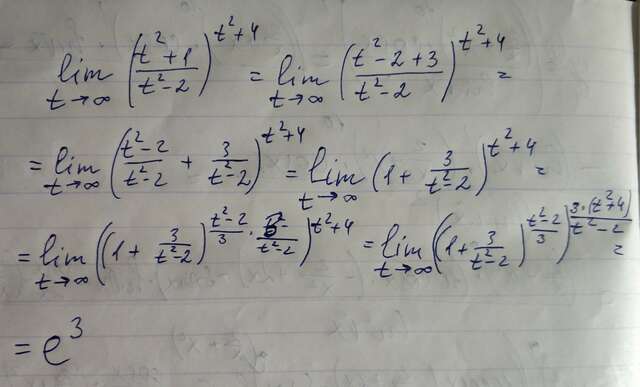 lim t→∞ ((t²+1)/(t²-2))^(t²+4) = lim t→∞ ((t²-2+3)/(t²-2))^(t²+4) =
= lim t→∞ ((t²-2)/(t²-2) + 3/(t²-2))^(t²+4) = lim t→∞ (1 + 3/(t²-2))^(t²+4) =
= lim t→∞ ((1 + 3/(t²-2))^((t²-2)/3 · /(t²-2)))^(t²+4) = lim t→∞ ((1 + 3/(t²-2))^((t²-2)/3))^(3·(t²+4)/(t²-2)) =
= e³